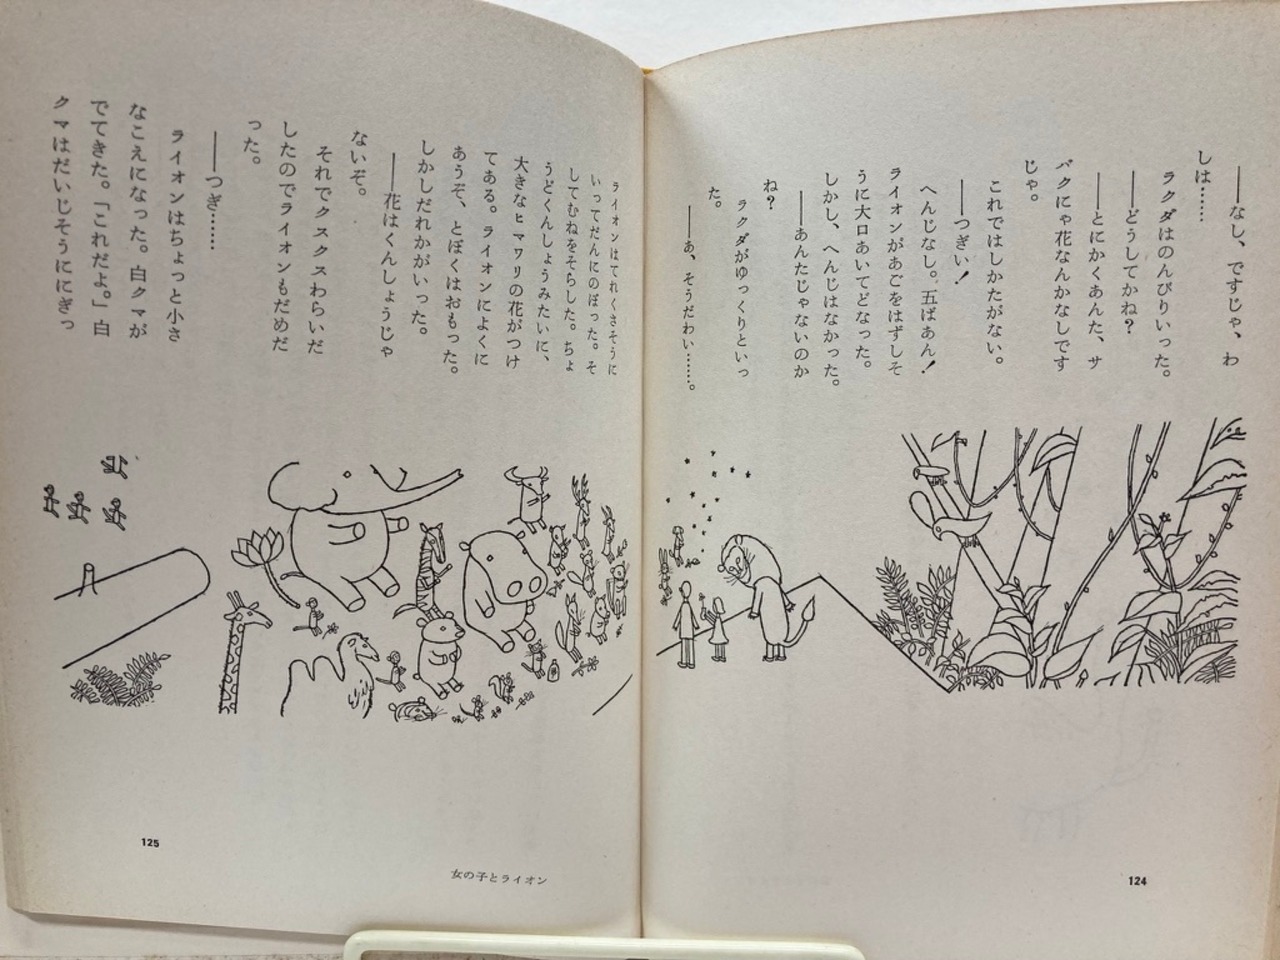 ――なし、ですじゃ、わ
しは……
ラクダはのんびりいった。
――どうしてかね？
――とにかくあんた、サ
バクにゃ花なんかなしです
じゃ。
これではしかたがない。
――つぎい！
へんじなし。五ばあん！
ライオンがあごをはずしそ
うに大口あいてどなった。
しかし、へんじはなかった。
――あんたじゃないのか
ね？
ラクダがゆっくりといっ
た。
――あ、そうだわい……。
124
ライオンはてれくさそうに
いってだんにのぼった。そ
してむねをそらした。ちょ
うどくんしょうみたいに、
大きなヒマワリの花がつけ
てある。ライオンによくに
あうぞ、とぼくはおもった。
しかしだれかがいった。
――花はくんしょうじゃ
ないぞ。
それでクスクスわらいだ
したのでライオンもだめだ
った。
――つぎ……
ライオンはちょっと小さ
なこえになった。白クマが
でてきた。「これだよ。」白
クマはだいじそうににぎっ
125
女の子とライオン